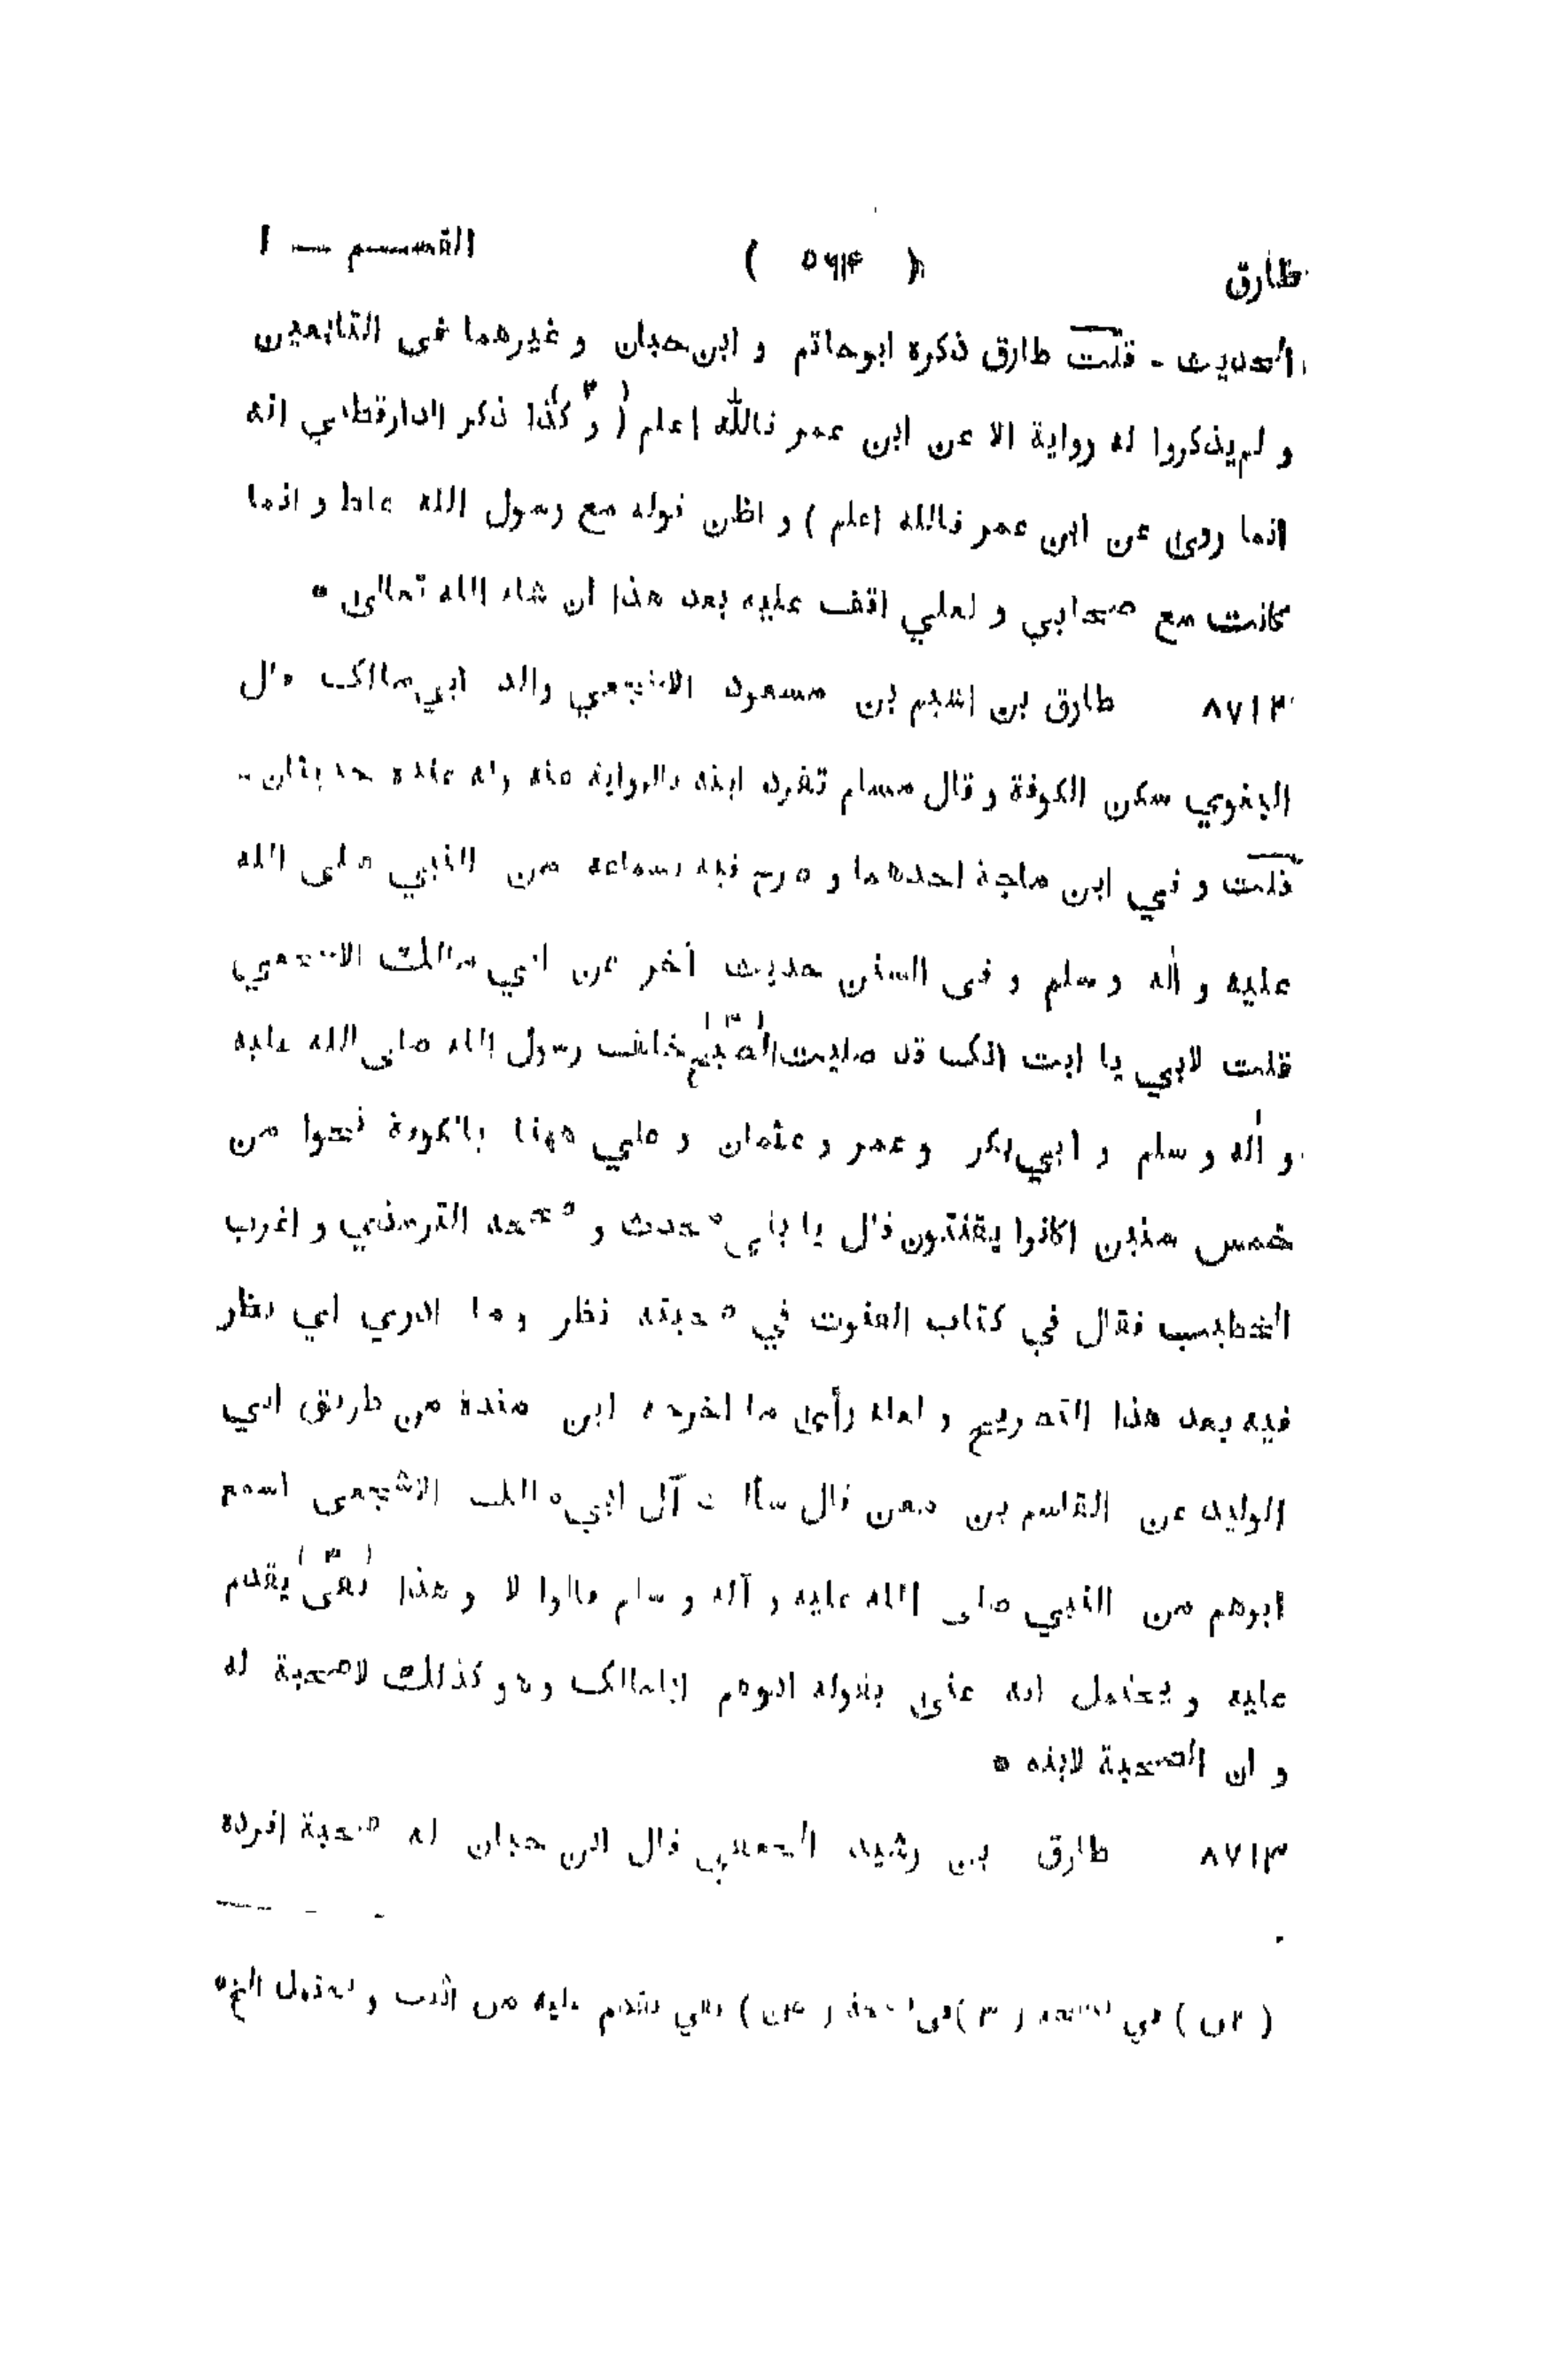 طارق ( ٥٦٤ ) القسم — ١
الحديث - قلت طارق ذكره ابوحاتم و ابن حبان و غيرهما فى التابعين
و لم يذكروا له رواية الا عن ابن عمر فالله اعلم ( و كذا ذكر الدارقطني انه
انما روى عن ابن عمر فالله اعلم ) و اظن قوله مع رسول الله غلط و انما
كانت مع صحابي و لعلي اقف عليه بعد هذا ان شاء الله تعالى *
٨٧١٢ طارق بن اشيم بن مسعود الاشجعي والد ابي مالك قال
البغوي سكن الكوفة و قال مسلم تفرد ابنه بالرواية عنه و له عنده حديثان -
قلت و في ابن ماجة احدهما و صرح فيه بسماعه من النبي صلى الله
عليه و اله و سلم و فى السنن حديث آخر عن ابي مالك الاشجعي
قلت لابي يا ابت انك قد صليت الصبح خلف رسول الله صلى الله عليه
و اله و سلم و ابي بكر و عمر و عثمان و علي ههنا بالكوفة نحوا من
خمس سنين اكانوا يقنتون قال يا بني محدث و صححه الترمذي و اغرب
الخطيب فقال في كتاب القنوت في صحبته نظر و ما ادري اي نظر
فيه بعد هذا التصريح و لعله رأى ما اخرجه ابن مندة من طريق ابي
الوليد عن القاسم بن معن قال سألت آل ابي مالك الاشجعى اسمع
ابوهم من النبي صلى الله عليه و آله و سلم قالوا لا و هذا نفى يقدم
عليه و يحتمل انه عنى بقوله ابوهم ابا مالك و هو كذلك لا صحبة له
و ان الصحبة لابيه *
٨٧١٣ طارق بن رشيد الجعفي قال ابن حبان له صحبة افرده
( ٢ن ) في نسخة ( ٣ ) فى نسخة ( ٤ن ) نفي يقدم عليه من اثبت و يحتمل الخ *